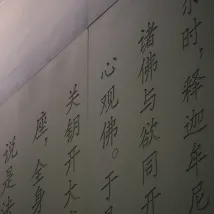 尔时，释迦牟尼
诸佛与欲同开
心观佛。于是
关钥开大
座，全身
说是法